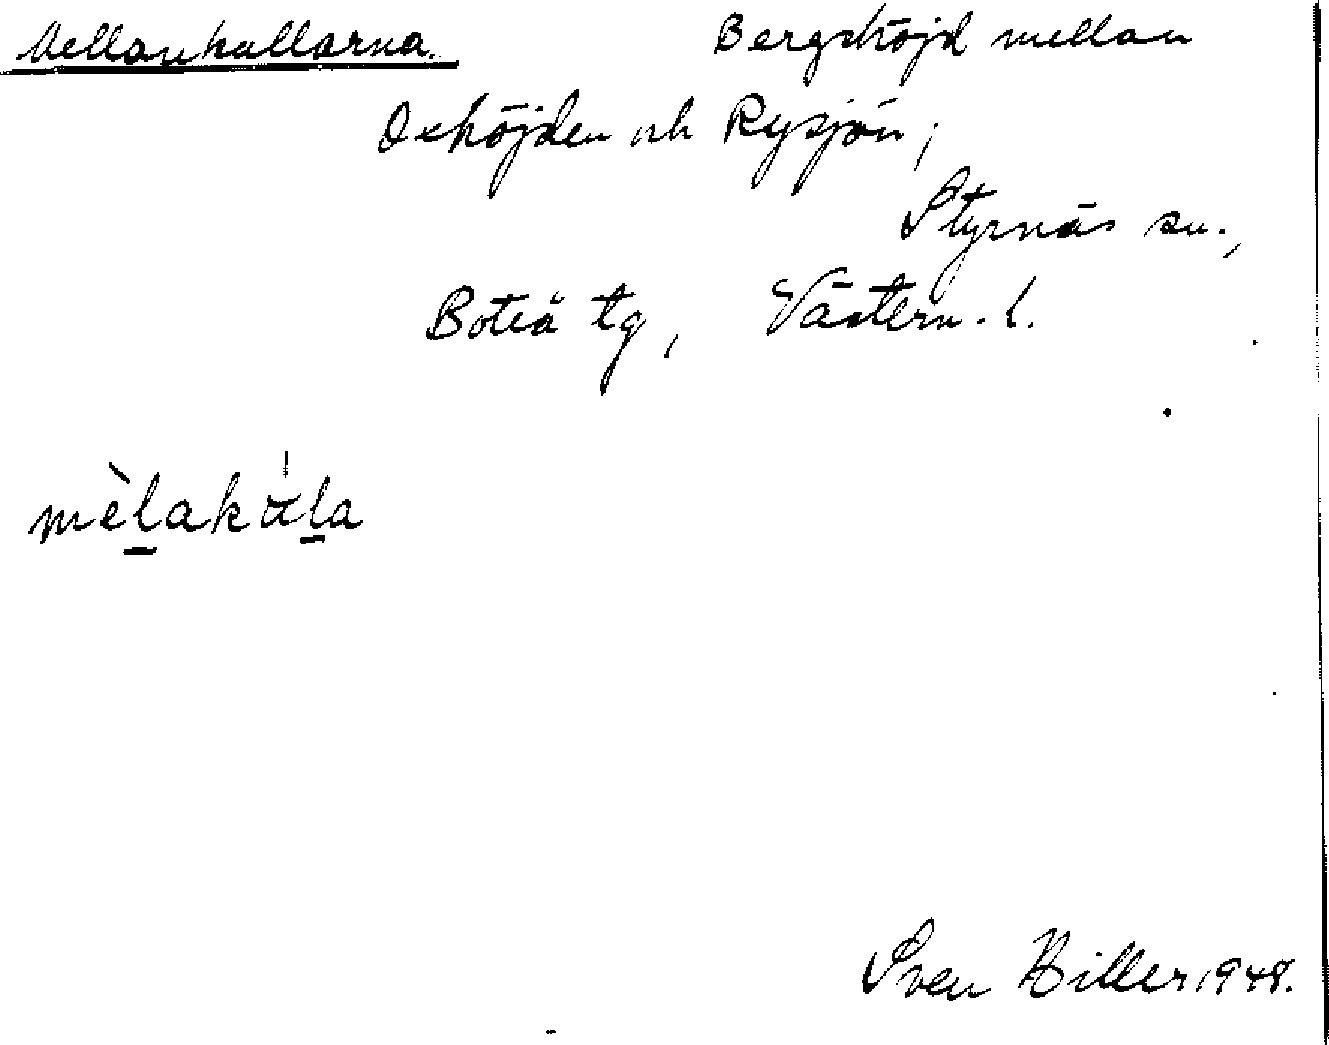 Mellankullarna. Bergshöjd mellan
Oxhöjden och Rysjön;
Styrnäs sn.,
Boteå tg, Västern. l.
mèlakɯ̈la
Sven Hiller 1948.